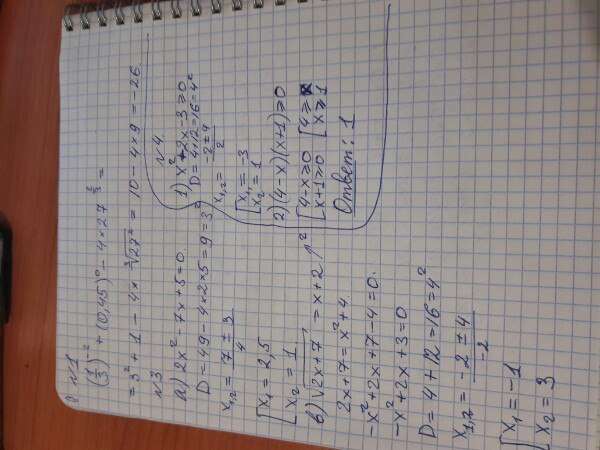 №1
(1/3)^-2 + (0,45)^0 - 4×27^(2/3) =
= 3^2 + 1 - 4×∛27^2 = 10 - 4×9 = -26.
№3
а) 2x^2 - 7x + 5 = 0.
D = 49 - 4×2×5 = 9 = 3^2
x1,2 = (7 ± 3)/4
[x1 = 2,5
[x2 = 1
в) √2x+7 = x+2 /^2
2x+7 = x^2+4
-x^2+2x+7-4=0.
-x^2+2x+3=0
D = 4+12=16=4^2
x1,2 = (-2 ± 4)/-2
[x1 = -1
[x2 = 3
№4.
1) x^2+2x-3≥0
D = 4+12=16=4^2
x1,2 = (-2 ± 4)/2
[x1 = -3
[x2 = 1
2) (4-x)(x+1)≥0
[4-x≥0 [4≥x
[x+1≥0 [x≥1
Ответ: 1